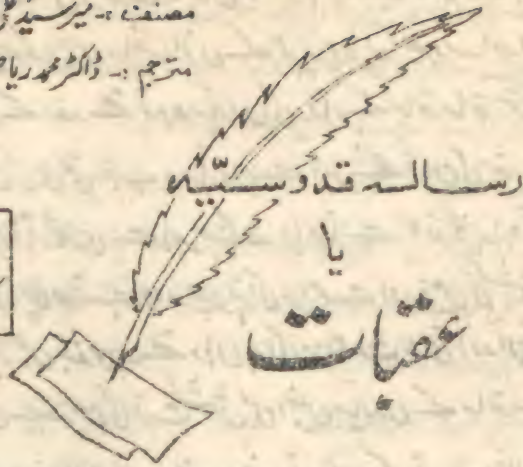 مصنف :- میر سید
مترجم :- ڈاکٹر محمد ریا
رسالہ قدوسیّہ
یا
عقبات